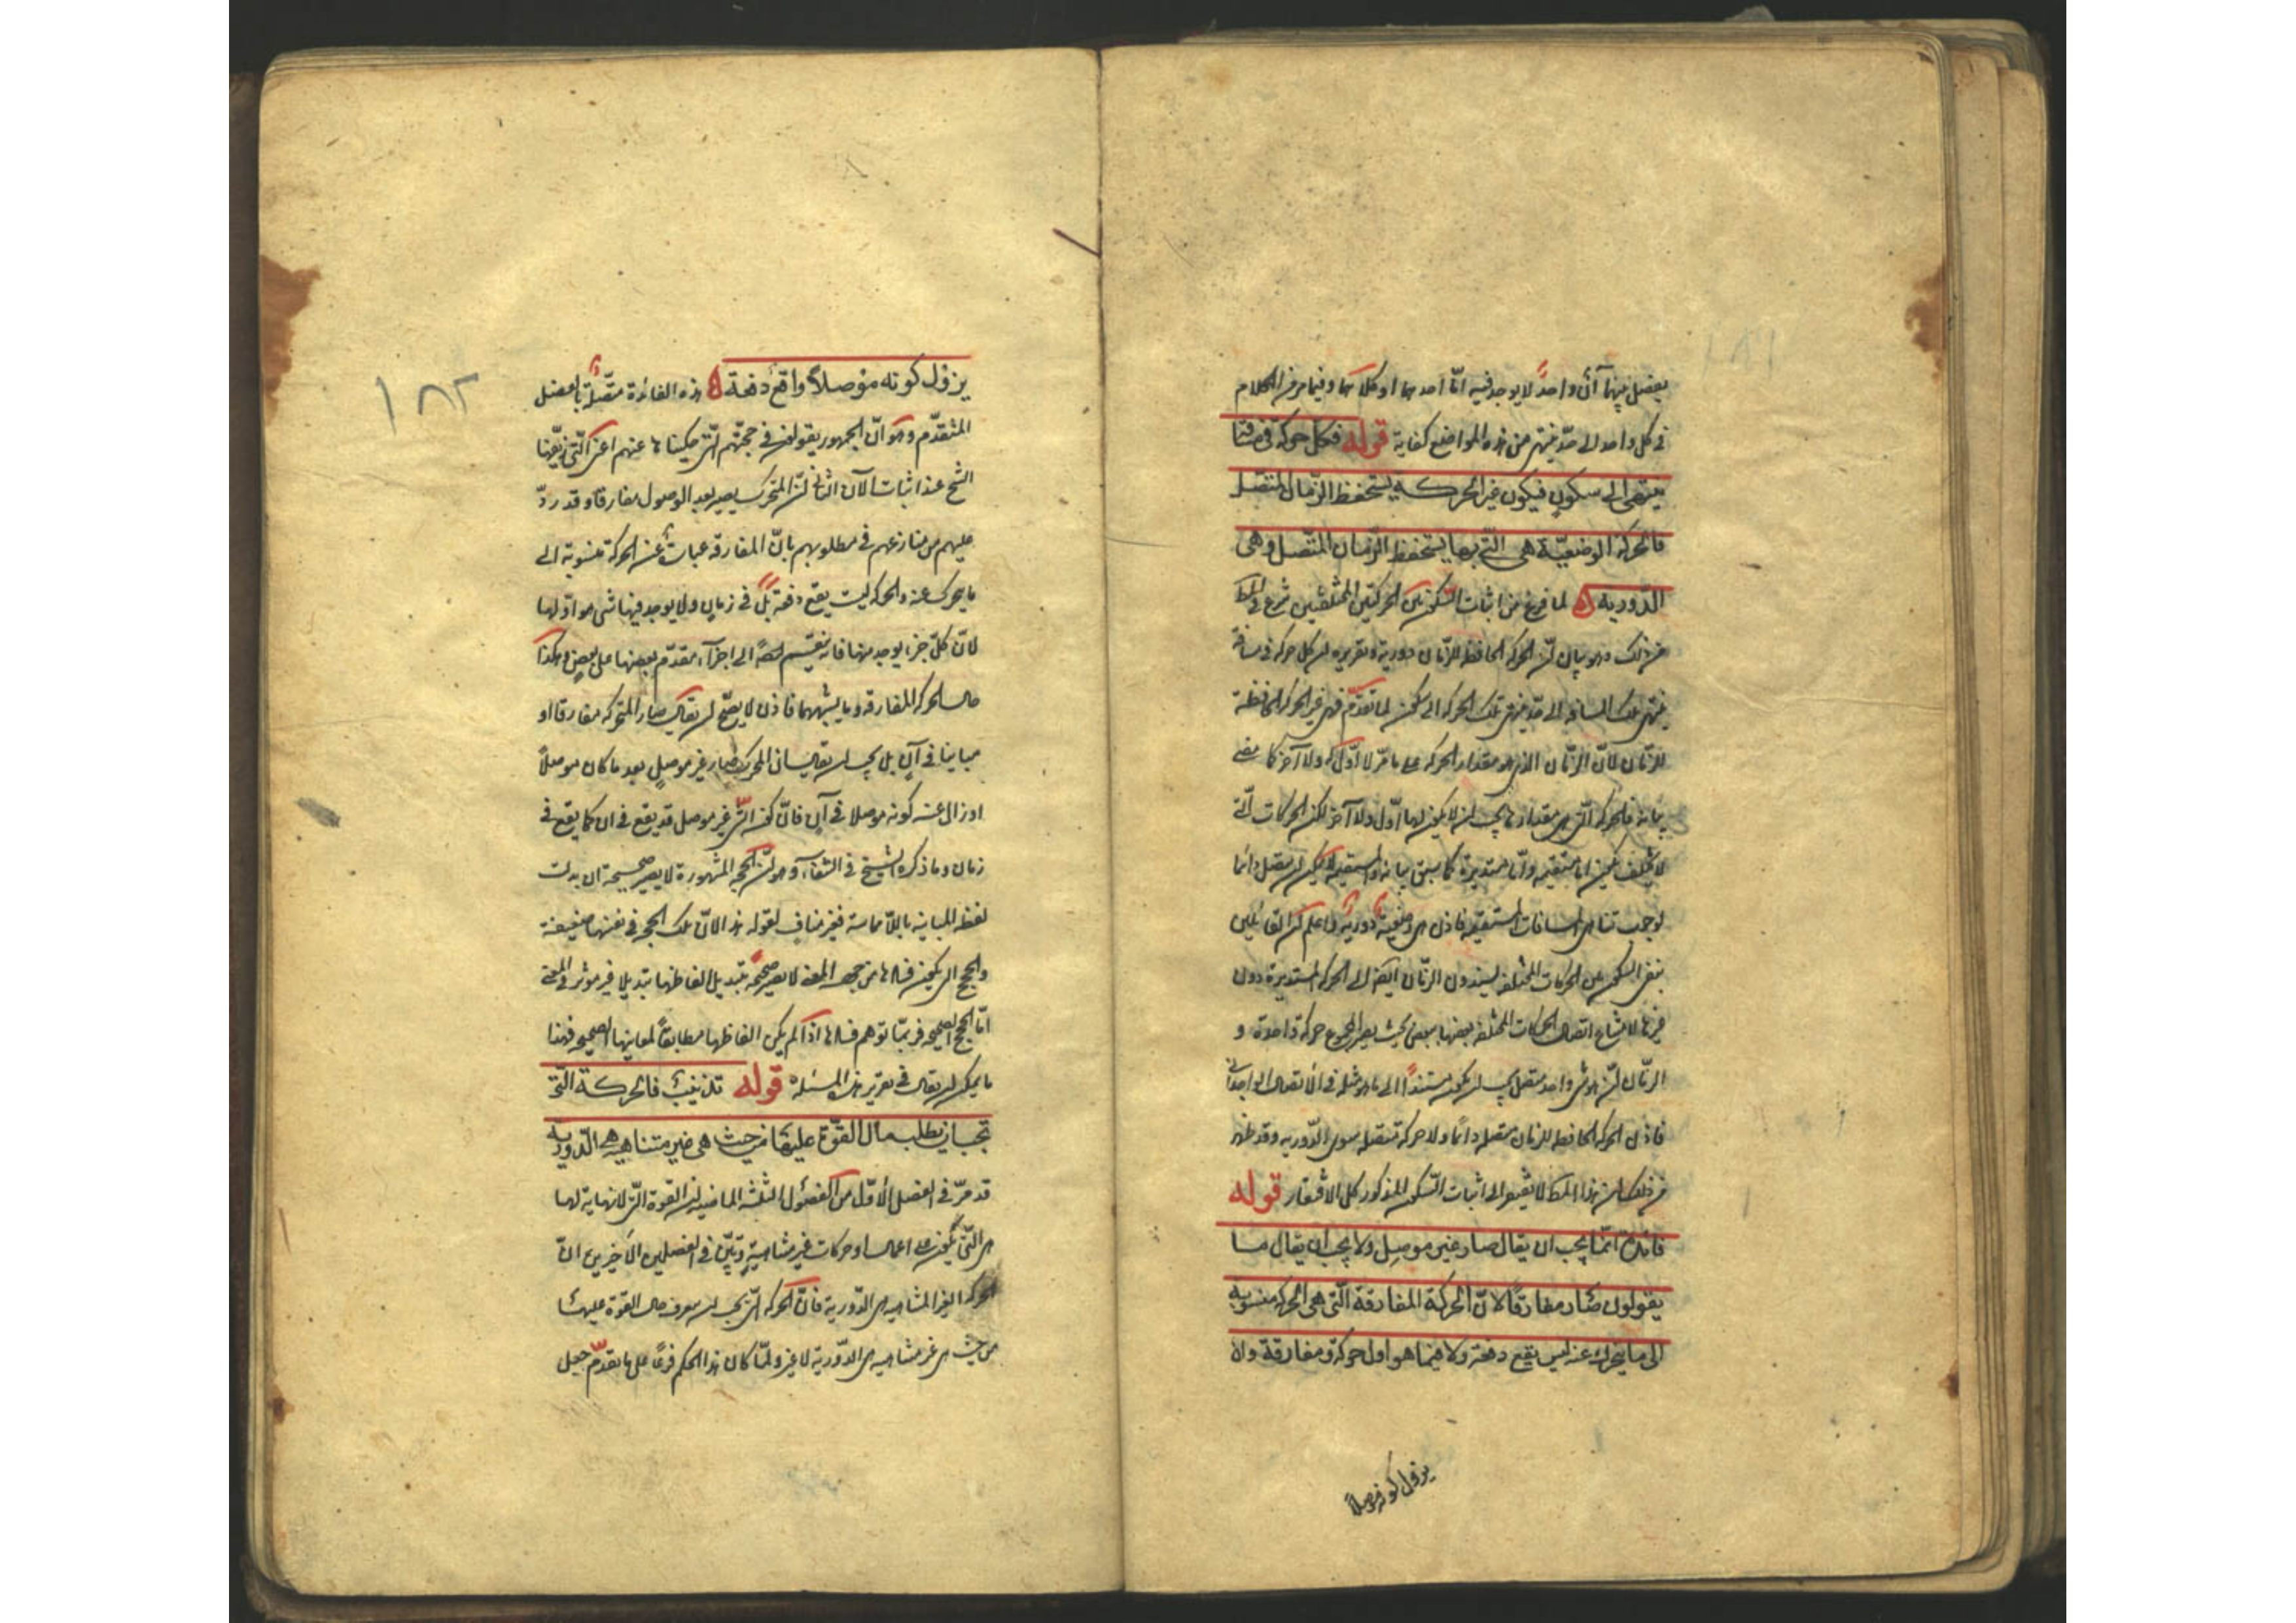 يفصل بينهما آن واحدا لا يوجد فيه اما احدهما او كلاهما وفيما مر من الكلام
فى كل واحد الى حد ينتهى من هذه المواضع كفاية قوله فكل حركة فى مسافة
ينتهى الى سكون فيكون غير الحركة يستحفظ الزمان المتصل
فالحركة الوضعيّة هى التى بها يستحفظ الزمان المتّصل وهى
الدورية لما فرغ من اثبات السكون بين الحركتين المختلفتين شرع فى المط
من ذلك وهو بيان ان الحركة الحافظة للزمان دورية وتقريره ان كل حركة فى مسافة
ينتهى تلك المسافة الى حد ينتهى تلك الحركة الى سكون لما تقدّم فهى غير الحركة الحافظة
للزمان لانّ الزمان الذى هو مقدار الحركة على ما مرّ لا اوّل له ولا آخر كما مضى
بيانه فالحركة التى هى مقدارها يجب ان لا يكون لها اوّل ولا آخر لكن الحركات التى
لا تختلف يكون اما مستقيمة وامّا مستديرة كما سبق بيانه والمستقيمة لا يمكن ان يتصل دائما
لوجوب تناهى المسافات المستقيمة فاذن هى وضعية دورية واعلم ان القائلين
بنفى السكون بين الحركات المختلفة يسندون الزمان ايضا الى الحركة المستديرة دون
غيرها لامتناع اتصال الحركات المختلفة بعضها ببعض بحيث يصير المجموع حركة واحدة و
الزمان لان هو شىء واحد متصل يجب ان يكون مستندا الى ما هو مثله فى الاتصال الوحدانى
فاذن الحركة الحافظة للزمان متصلة دائما ولا حركة متصلة سوى الدّورية وقد ظهر
من ذلك ان هذا المط لا يفتقر الى اثبات السّكون المذكور كل الافتقار قوله
فائدة انما يجب ان يقال صار غير موصل ولا يجب ان يقال ما
يقولون صار مفارقا لانّ الحركة المفارقة التى هى الحركة منسوبة
الى ما يتحرك عنه ليس يقع دفعة ولا فيما هو اول حركة ومفارقة وان
يزول كونه موصلاً
يزول كونه موصلاً واقع دفعة هذه الفائدة متّصلة بالفصل
المتقدّم وهو انّ الجمهور يقولون فى حجّتهم التى حكيناها عنهم اعنى التى زيّفها
الشيخ عند اثبات الآن الثانى ان المتحرك يصير بعد الوصول مفارقا وقد ردّ
عليهم من منازعهم فى مطلوبهم بانّ المفارقة عبارة عن الحركة منسوبة الى
ما يتحرك عنه والحركة ليست يقع دفعة بل فى زمان ولا يوجد فيها شىء هو اوّلها
لانّ كلّ جزء يوجد منها فانه ينقسم ايضا الى اجزاء متقدّم بعضها على بعض وهكذا
حال الحركة المفارقة وما يشبهها فاذن لا يصحّ ان يقال صار المتحرك مفارقا او
مباينا فى آن بل يجب ان يقال ان المحرك صار غير موصل بعد ما كان موصلاً
او زال عنه كونه موصلا فى آن فانّ كون الشىء غير موصل قد يقع فى ان كما يقع فى
زمان وما ذكره الشيخ فى الشفاء وهو ان الحجج المشهورة لا يصير صحيحة ان بدلت
لفظة المباينة باللا مماسة فغير مناف لقوله هذا لانّ تلك الحجج فى نفسها ضعيفة
والحجج التى يكون فسادها من جهة المعنى لا يصير صحيحة بتبديل الفاظها تبديلا غير موثر فى المعنى
امّا الحجج الصحيحة فربّما توهم فسادها اذا لم يكن الفاظها مطابقة لمعانيها الصحيحة فهذا
ما يمكن ان يقال فى تقرير هذه المسئلة قوله تذنيب فالحركة التى
تجب ان يطلب حال القوّة عليها من حيث هى غير متناهية هى الدّورية
قد مرّ فى الفصل الاوّل من الفصول الثلثة الماضية ان القوة التى لا نهاية لها
هى التى يكون على اعمال او حركات غير متناهية وتبيّن فى الفصلين الاخيرين انّ
الحركة الغير المتناهية هى الدّورية فانّ الحركة التى يجب ان يعرف حال القوّة عليها
من حيث هى غير متناهية هى الدّورية لا غير ولمّا كان هذا الحكم فرعا على ما تقدّم جعل
١٨٢